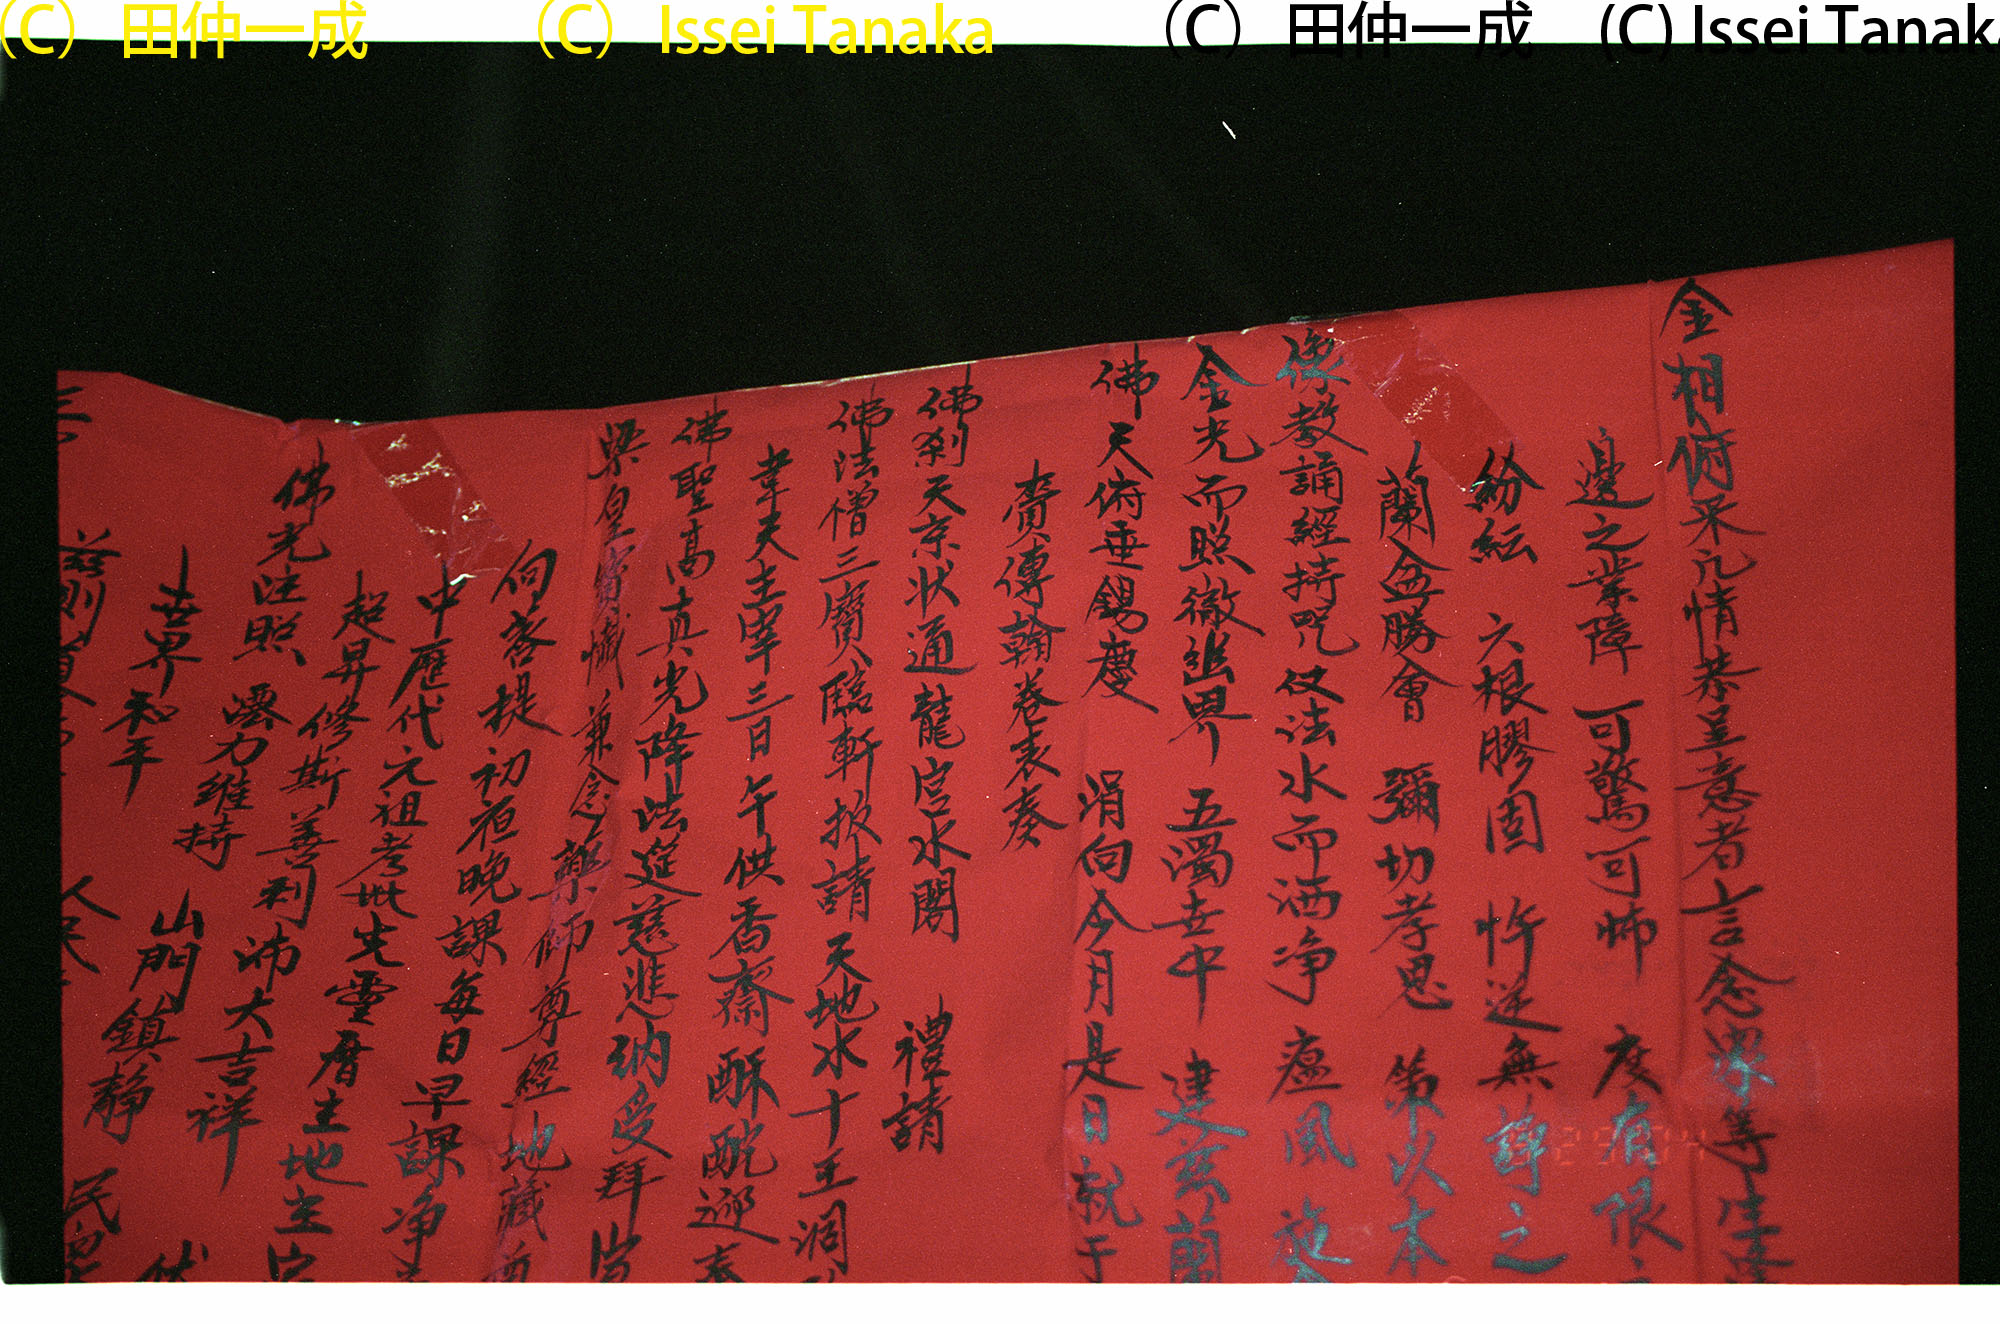 (C) 田仲一成 (C) Issei Tanaka (C) 田仲一成 (C) Issei Tanaka
金相俯采凡情恭呈意者言念眾等生
邊之業障 可驚可怖 度有限
紛紜 六根膠固 忤逆無
蘭盆勝會 彌切孝思 第以本
像教誦經持咒仗法水而洒净 瘟風 施
金光而照徹幽界 五濁世中 建茲蘭
佛天俯垂錫慶 涓向今月是日就于
賫傳翰卷表奏
佛剎天京状通龍宮水閣 禮請
佛法僧三寳臨軒披請 天地水十王洞
韋天主宰三日午供香齋酥酡迎奉
佛聖高真光降法筵慈悲納受拜
梁皇寳懺兼念藥師尊經地藏尊
向啓提初夜晚課每日早課净
中歷代元祖考妣先靈
超昇修斯善利沛大吉祥
佛光注照 靈力維持
世界和平 山門鎮靜
茲則 人民 民